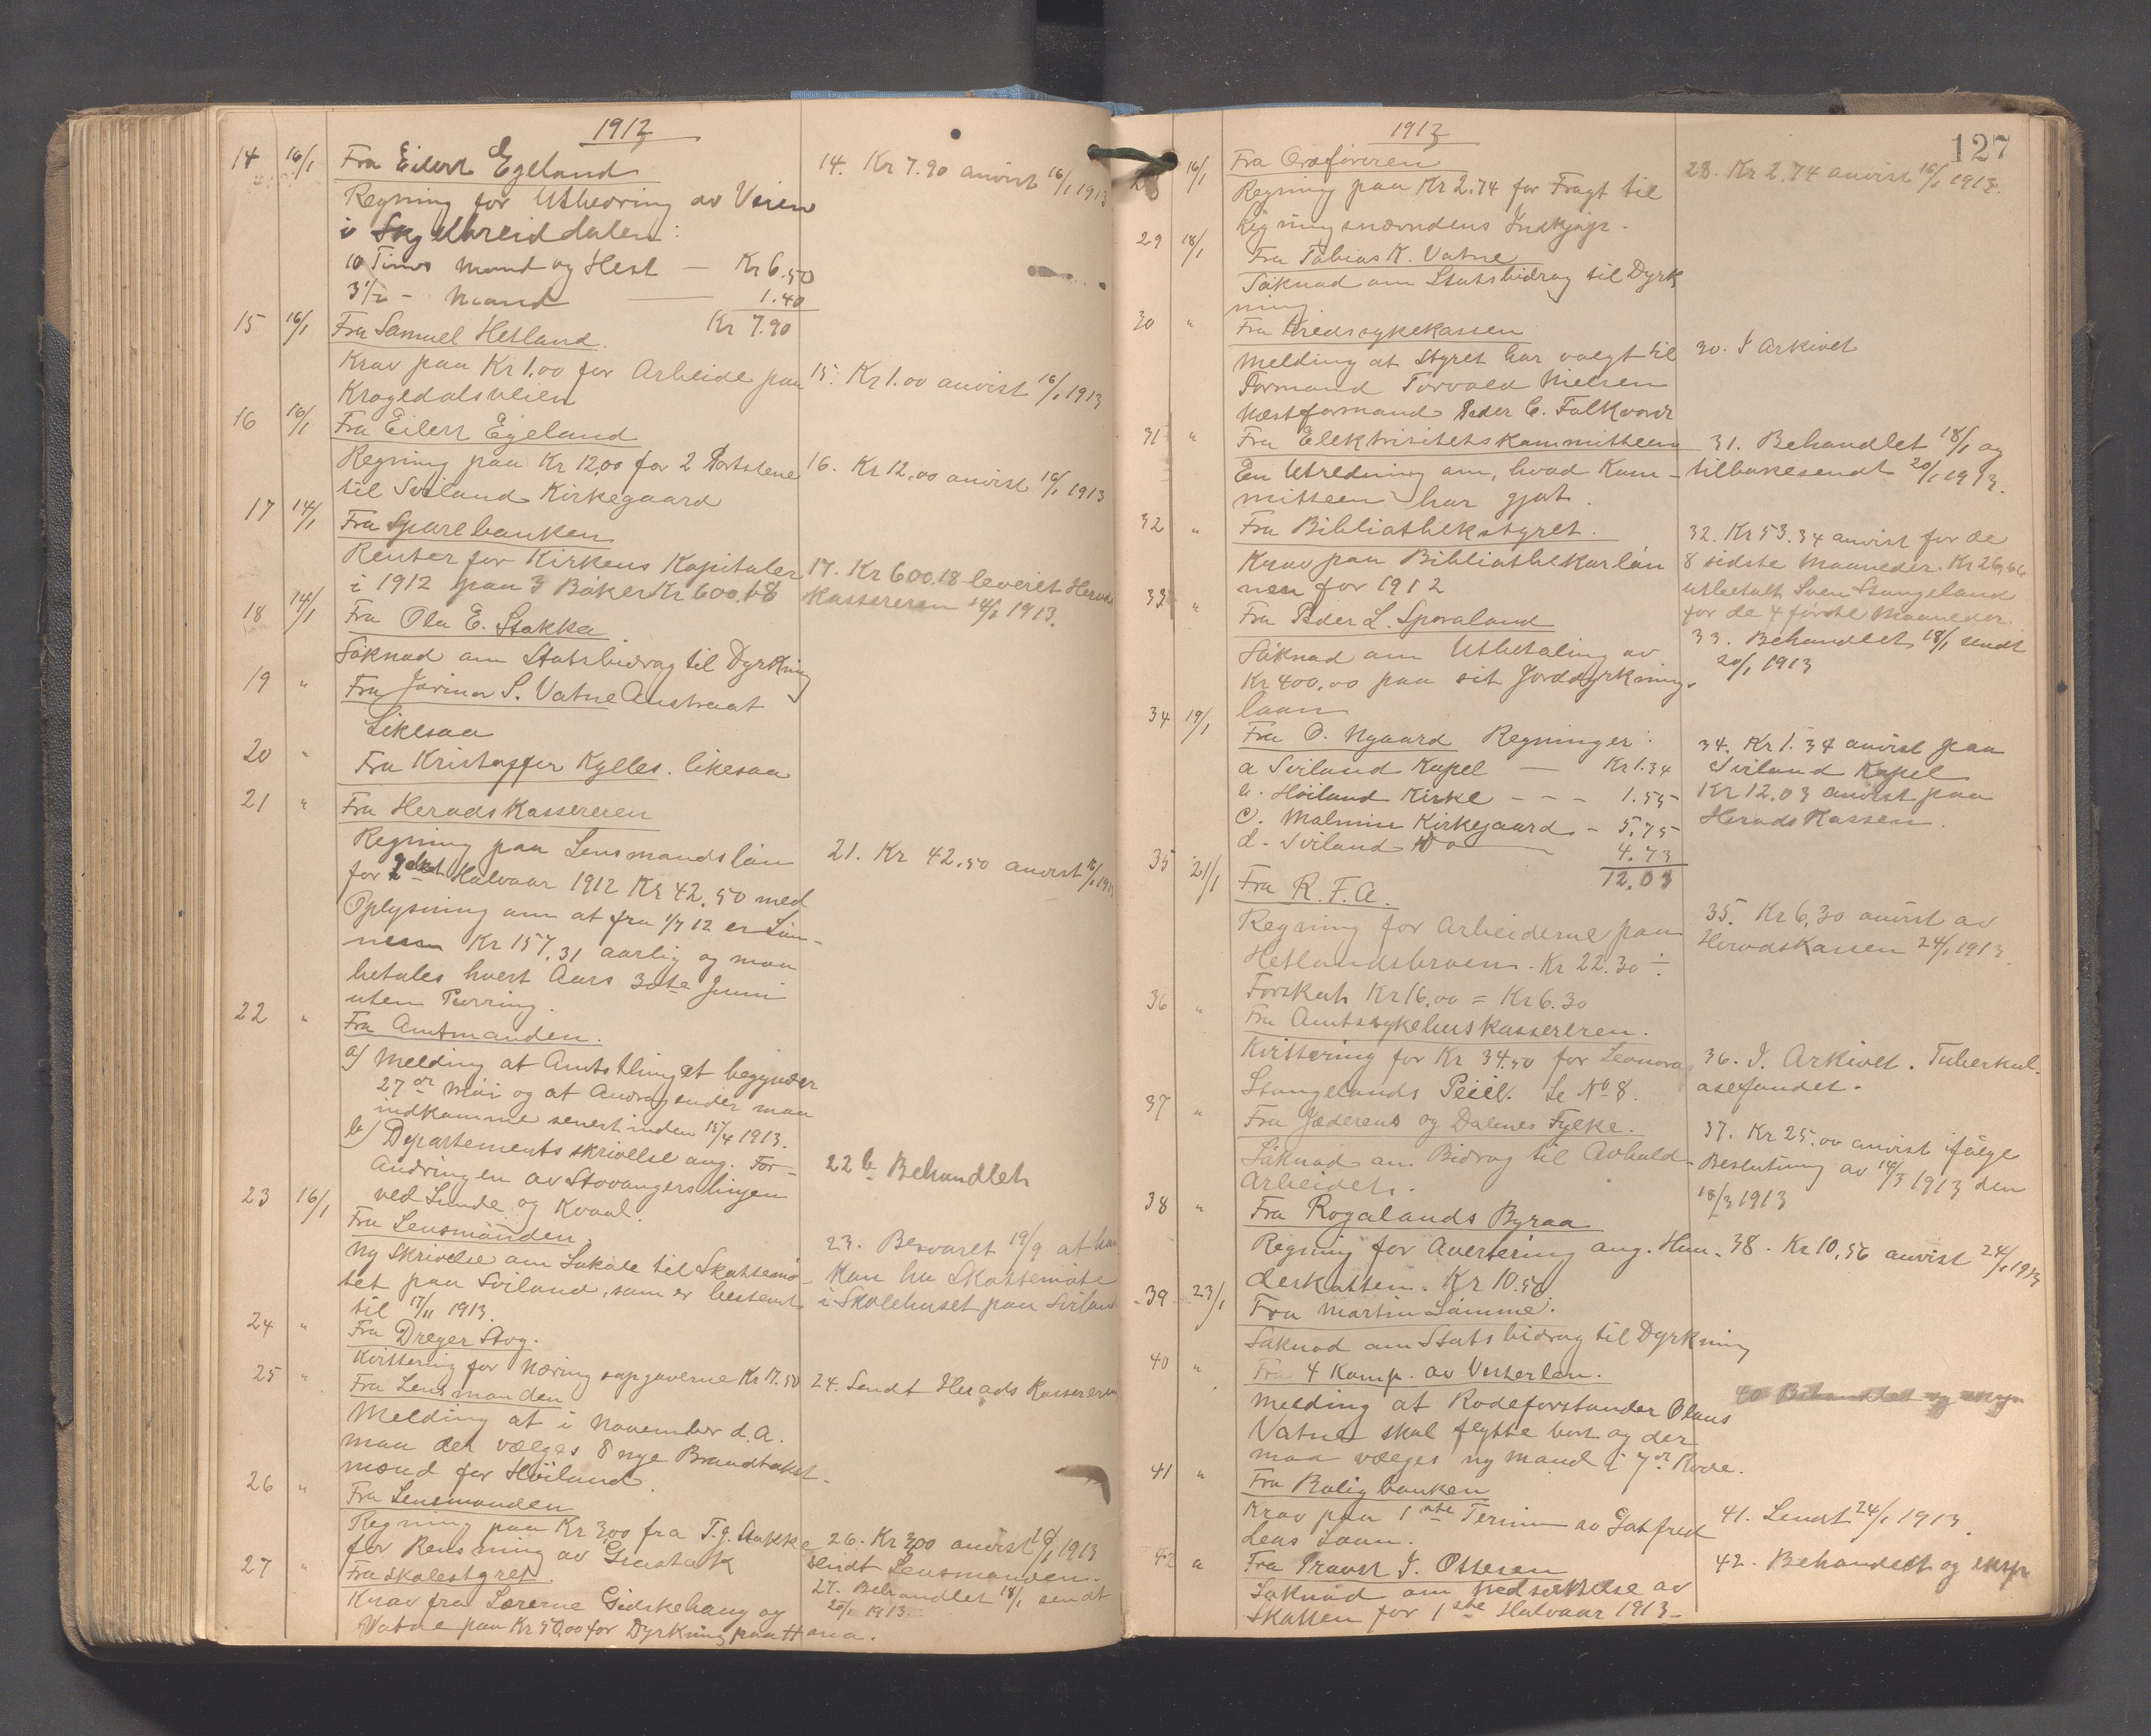 1913
14 16/1 Fra Eilert Egeland
14. Kr 7.90 anvist 16/1 1913
Regning for Utbedring av Veien
i Skjelbreiddalen:
10 Timer Mand og Hest — Kr 6.50
3 1/2 - Mand — 1.40
Kr 7.90
15 16/1 Fra Samuel Hetland.
Krav paa Kr 1.00 for Arbeide paa
15. Kr 1.00 anvist 16/1 1913
Kragedalsveien
16 16/1 Fra Eilert Egeland
Regning paa Kr 12,00 for 2 Portstene
16. Kr 12.00 anvist 16/1 1913
til Sviland Kirkegaard
17 14/1 Fra Sparebanken
Renter for Kirkens Kapitaler
17. Kr 600.18 leveret Herads
i 1912 paa 3 Bøker Kr 600.18
Kassereren 1913.
18 14/1 Fra Ola E. Stokka
Søknad om Statsbidrag til Dyrkning
19 " Fra Jørina S. Vatne Austraat
Likesaa
20 " Fra Kristoffer Kylles. likesaa
21 " Fra Heradskassereren
Regning paa Lensmandsløn
21. Kr 42.50 anvist 16/1 1913
for 2det Halvaar 1912 Kr 42.50 med
Oplysning om at fra 1/7 12 er Løn-
nen Kr 157.31 aarlig og maa
betales hvert Aars 30te Juni
uten Purring.
22 " Fra Amtmanden.
a) Melding at Amtsthinget begynder
27de Mai og at Andragender maa
indkomme senest inden 15/4 1913.
b) Departementsskrivelse ang. For-
22 b Behandlet
andringen av Stavangerslinjen
ved Lunde og Kvaal.
23 16/1 Fra Lensmanden
Ny Skrivelse om Lokale til Skattemø-
23. Besvaret 19/9 at han
tet paa Sviland, som er bestemt
kan ha Skattemøte
til 17/11 1913.
i Skolehuset paa Sviland
24 " Fra Dreyer Stvg.
Kvittering for Næringsopgaverne Kr 17.50
24. Sendt Heradskassereren
25 " Fra Lensmanden
Melding at i November d.A.
maa der vælges 8 nye Brandtakst-
mænd for Høiland.
26 " Fra Lensmanden
Regning paa Kr 3.00 fra T. G. Stokke
26. Kr 3.00 anvist 1913
for Rensning av Grustak
sendt Lensmanden.
27 " Fra Skolestyret.
27. Behandlet 18/1 sendt
Krav fra Lærerne Gidskehaug og
20/1 1913.
Vatne paa Kr 50.00 for Dyrkning paa Hana.
1913
127
28 16/1 Fra Ordføreren
28. Kr 2.74 anvist 16/1 1913.
Regning paa Kr 2.74 for Fragt til
Ligningsnævndens Indkjøp.
29 18/1 Fra Tobias K. Vatne
Søknad om Statsbidrag til Dyrk
ning
30 " Fra Kredssykekassen
30. I Arkivet
Melding at Styret har valgt til
Formand Torvald Nielsen
Næstformand Peder C. Falkvord
31 " Fra Elektrisitetskommitteen
31. Behandlet 18/1 og
En Utredning om, hvad Kom-
tilbakesendt 20/1 1913.
mitteen har gjort.
32 " Fra Bibliothekstyret.
32. Kr 53.34 anvist for de
Krav paa Bibliothekarløn
8 sidste Maaneder. Kr 26,66
nen for 1912
utbetalt Sven Stangeland
for de 4 første Maaneder.
33 " Fra Peder L. Sporaland
33. Behandlet 18/1 sendt
Søknad om Utbetaling av
20/1 1913
Kr 400,00 paa sit Jorddyrknings
laan
34 19/1 Fra O. Nygaard Regninger:
34. Kr 1.34 anvist paa
a Sviland Kapel — Kr 1.34
Sviland Kapel
b. Høiland Kirke - - - 1.55
Kr 12.03 anvist paa
c. Malmin Kirkegaard - 5.75
Herads Kassen.
d. Sviland Do — 4.73
12.03
35 21/1 Fra R. F. A.
35. Kr 6.30 anvist av
Regning for Arbeiderne paa
Heradskassen 24/1 1913.
Hetlandsbroen. Kr 22.30 ÷
Forskut Kr 16.00 = Kr 6.30
36 " Fra Amtssykehuskassereren.
Kvittering for Kr 34.50 for Leonora
36. I. Arkivet. Tuberkul-
Stangelands Pleie. Se No 8.
osefondet.
37 " Fra Jæderens og Dalenes Fylke.
37. Kr 25.00 anvist ifølge
Søknad om Bidrag til Avhold-
Beslutning av 14/3 1913 den
Arbeidet.
18/3 1913
38 " Fra Rogalands Byraa
Regning for Avertering ang. Hun-
38. Kr 10.56 anvist 24/1 1913
deskatten. Kr 10.56
39 23/1 Fra Martin Lamme.
Søknad om Statsbidrag til Dyrkning
40 " Fra 4 Komp. av Vesterlen.
40 Behandlet og eksp
Melding at Rodeforstander Olaus
Vatne skal flytte bort og der
maa vælges ny Mand i 7de Rode.
41 " Fra Boligbanken
Krav paa 1ste Termin av Gotfred
41. Sendt 24/1 1913.
Leas Laan.
42 " Fra Provst J. Ottesen
42. Behandelt og eksp
Søknad om Nedsættelse av
Skatten for 1ste Halvaar 1913-